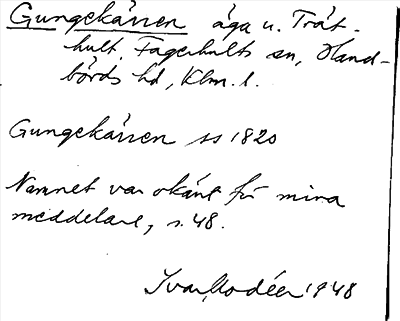 Gungekärren äga u. Trät-
hult. Fagerhults sn, Hand-
börds hd, Klm. l.
Gungekärren ss 1820
Namnet var okänt för mina
meddelare, s. 48.
Ivar Modéer 1948